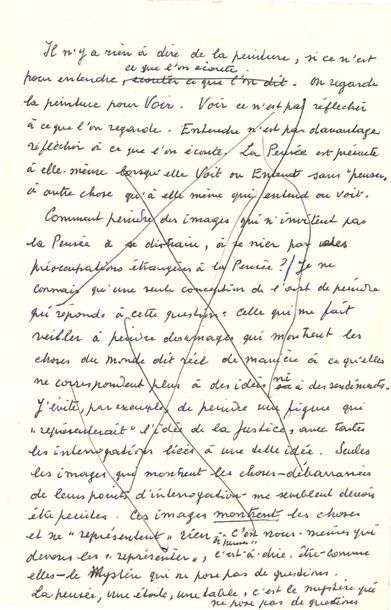 Il n'y a rien à dire de la peinture, si ce n'est
ce que l'on écoute
pour entendre, écouter ce que l'on dit. On regarde
la peinture pour Voir. Voir ce n'est pas réfléchir
à ce que l'on regarde. Entendre n'est pas davantage
réfléchir à ce que l'on écoute. La Pensée est présente
à elle-même lorsqu'elle Voit ou Entend sans "penser"
à autre chose qu'à elle même qui entend ou voit.
Comment peindre des images qui n'invitent pas
la Pensée à se distraire, à se nier par des
préoccupations étrangères à la Pensée? Je ne
connais qu'une seule conception de l'art de peindre
qui réponde à cette question: celle qui me fait
veiller à peindre des images qui montrent les
choses du monde dit réel de manière à ce qu'elles
ne correspondent plus à des idées ni à des sentiments.
J'évite, par exemple, de peindre une figure qui
"représenterait" l'idée de la Justice, avec toutes
les interrogations liées à une telle idée. Seules
les images qui montrent les choses débarrassées
de leurs points d'interrogation me semblent devoir
être peintes. Ces images montrent les choses
et ne "représentent" rien. C'est nous-mêmes qui
devons les "représenter", c'est-à-dire être comme
elles le Mystère qui ne pose pas de questions.
La pensée, une étoile, une table, c'est le mystère qui
ne pose pas de questions